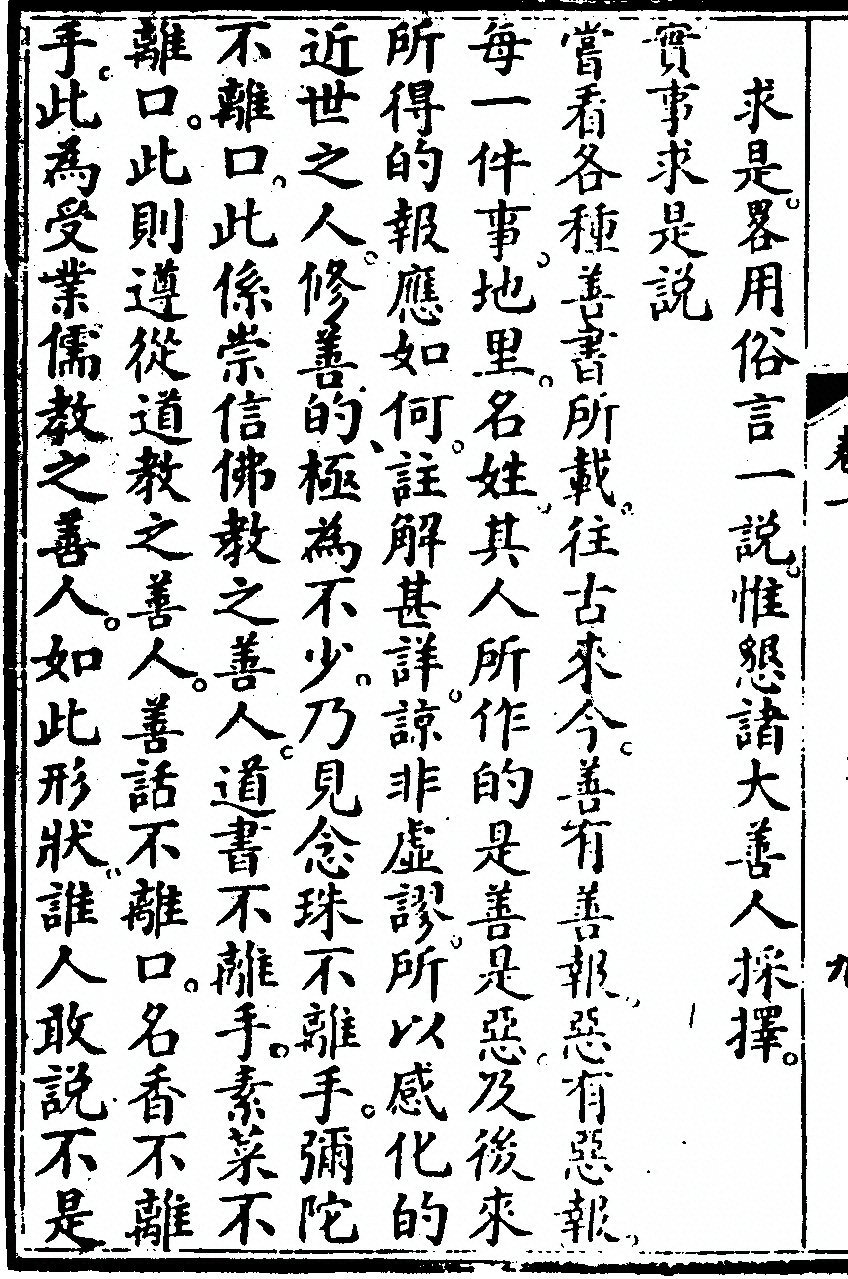 卷一
九
求是。畧用俗言一説。惟懇諸大善人採擇。
實事求是説
嘗看各種善書所載。往古來今。善有善報。惡有惡報。
每一件事。地里。名姓。其人所作的是善是惡。及後來
所得的報應如何。註解甚詳。諒非虛謬。所以感化的
近世之人。修善的、極為不少。乃見念珠不離手。彌陀
不離口。此係崇信佛教之善人。道書不離手。素菜不
離口。此則遵從道教之善人。善話不離口。名香不離
手。此為受業儒教之善人。如此形狀。誰人敢説不是